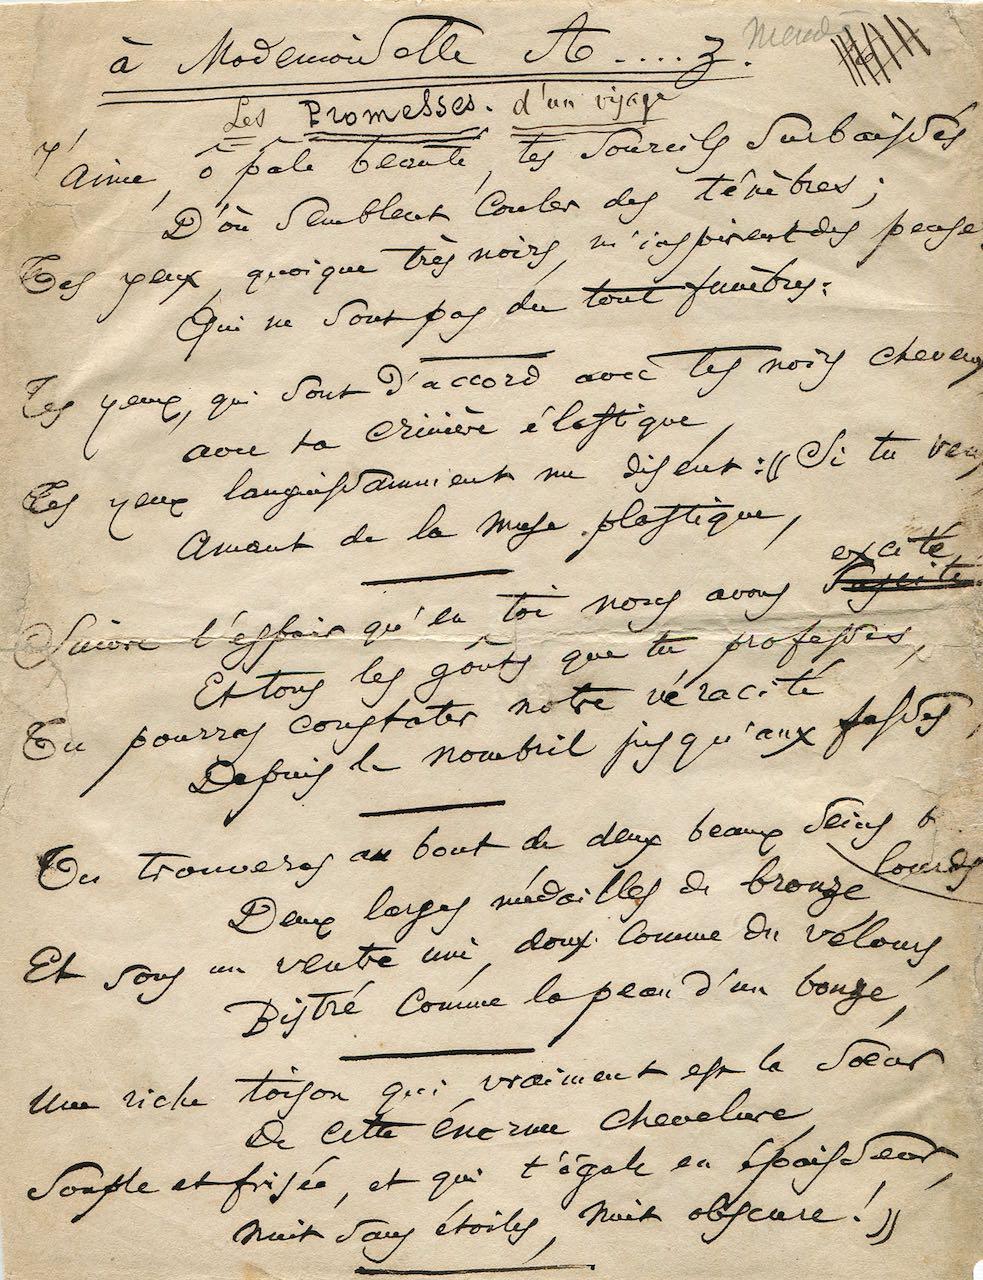 à Mademoiselle A.....z.
Les Promesses. d'un visage
J'aime, ô pâle beauté, tes sourcils surbaissés
D'où semblent couler des ténèbres;
Tes yeux, quoique très noirs, m'inspirent des pense
Qui ne sont pas du tout funèbres:
Tes yeux, qui sont d'accord avec tes noirs cheveux
avec ta crinière élastique,
Tes yeux languissamment me disent: « Si tu veux
Amant de la muse plastique,
excité,
Suivre l'espoir qu'en toi nous avons
Et tous les goûts que tu professes,
Tu pourras constater notre véracité
Depuis le nombril jusqu'aux fesses,
Tu trouveras au bout de deux beaux seins b
lourds
Deux larges médailles de bronze
Et sous un ventre uni, doux comme du vélours,
Bistré comme la peau d'un bonze,
Une riche toison qui vraiment est la sœur
De cette énorme chevelure,
Souple et frisée, et qui t'égale en épaisseur,
Nuit sans étoiles, nuit obscure! »